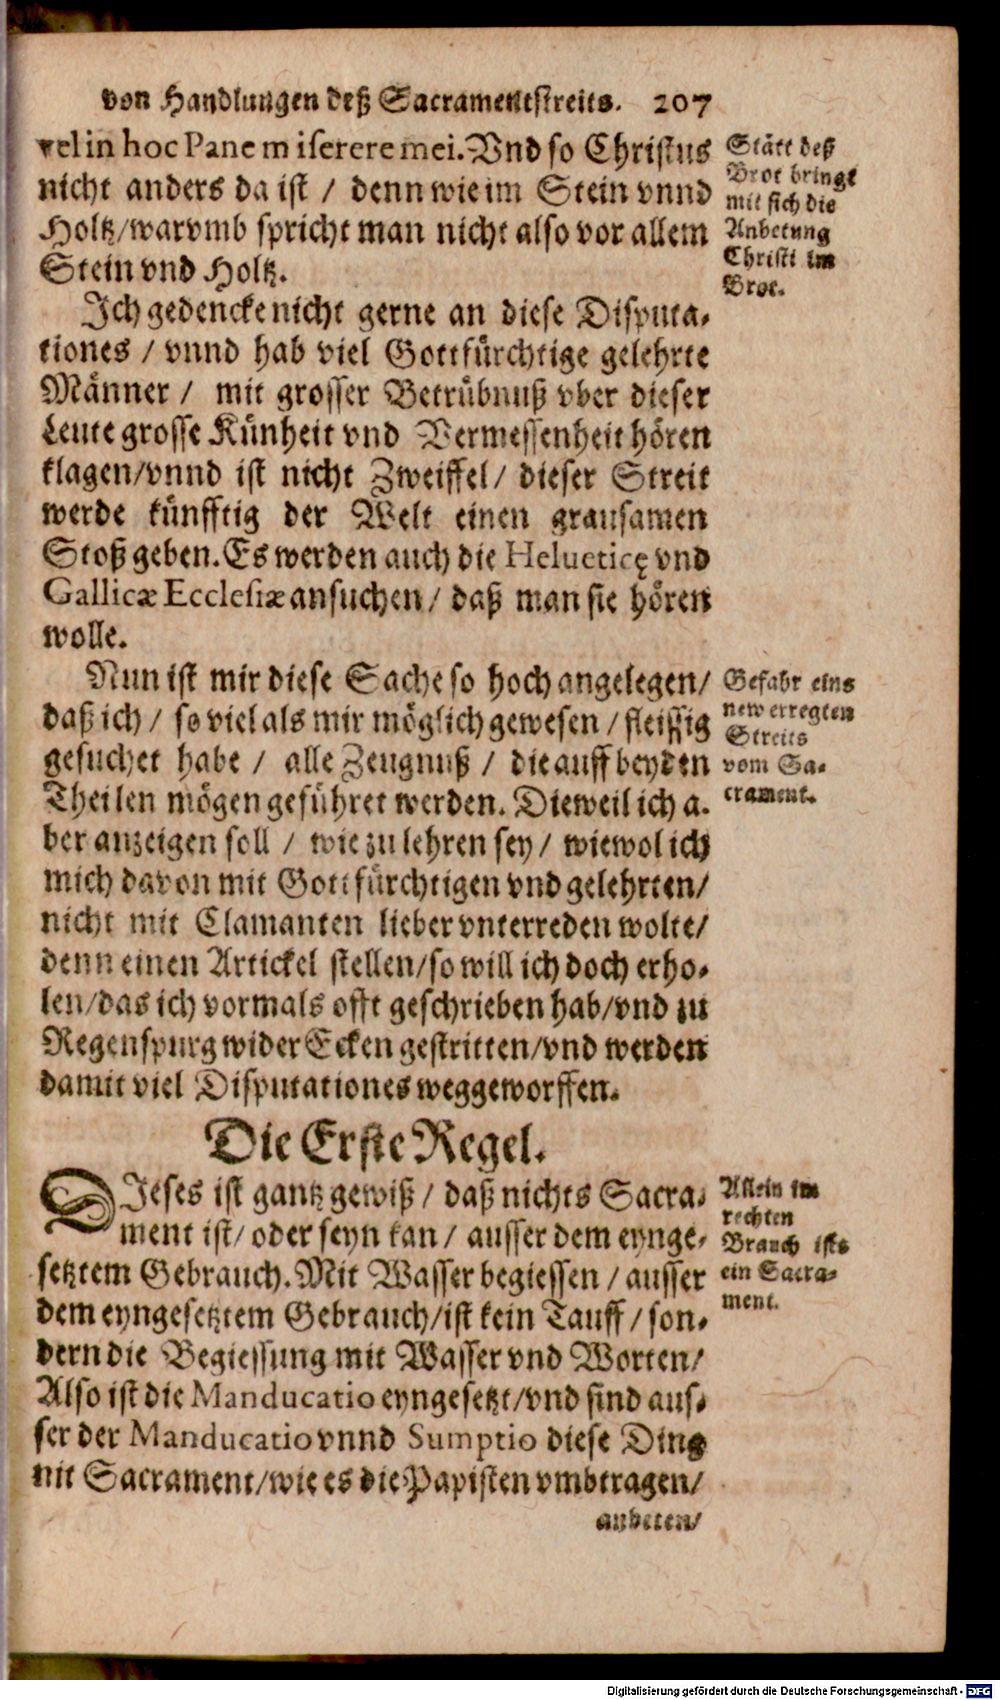 von Handlungen deß Sacramentstreits. 207
vel in hoc Pane miserere mei. Vnd so Christus
nicht anders da ist / denn wie im Stein vnnd
Holtz/warvmb spricht man nicht also vor allem
Stein vnd Holtz.
Stätt deß
Brot bringt
mit sich die
Anbetung
Christi im
Brot.
Ich gedencke nicht gerne an diese Disputa-
tiones / vnnd hab viel Gottfürchtige gelehrte
Männer / mit grosser Betrübnuß vber dieser
Leute grosse Künheit vnd Vermessenheit hören
klagen/vnnd ist nicht Zweiffel/ dieser Streit
werde künfftig der Welt einen grausamen
Stoß geben. Es werden auch die Helueticę vnd
Gallicæ Ecclesiæ ansuchen/ daß man sie hören
wolle.
Nun ist mir diese Sache so hoch angelegen/
daß ich / so viel als mir möglich gewesen / fleissig
gesuchet habe / alle Zeugnuß / die auff beyden
Theilen mögen geführet werden. Dieweil ich a-
ber anzeigen soll / wie zu lehren sey/ wiewol ich
mich davon mit Gottfürchtigen vnd gelehrten/
nicht mit Clamanten lieber vnterreden wolte/
denn einen Artickel stellen/so will ich doch erho-
len/das ich vormals offt geschrieben hab/vnd zu
Regenspurg wider Ecken gestritten/vnd werden
damit viel Disputationes weggeworffen.
Gefahr eins
new erregten
Streits
vom Sa-
crament.
Die Erste Regel.
DJeses ist gantz gewiß / daß nichts Sacra-
ment ist/ oder seyn kan/ ausser dem eynge-
setztem Gebrauch. Mit Wasser begiessen / ausser
dem eyngesetztem Gebrauch/ist kein Tauff / son-
dern die Begiessung mit Wasser vnd Worten/
Also ist die Manducatio eyngesetzt/vnd sind aus-
ser der Manducatio vnnd Sumptio diese Ding
nit Sacrament/wie es die Papisten vmbtragen/
anbeten/
Allein im
rechten
Brauch ists
ein Sacra-
ment.
Digitalisierung gefördert durch die Deutsche Forschungsgemeinschaft - DFG